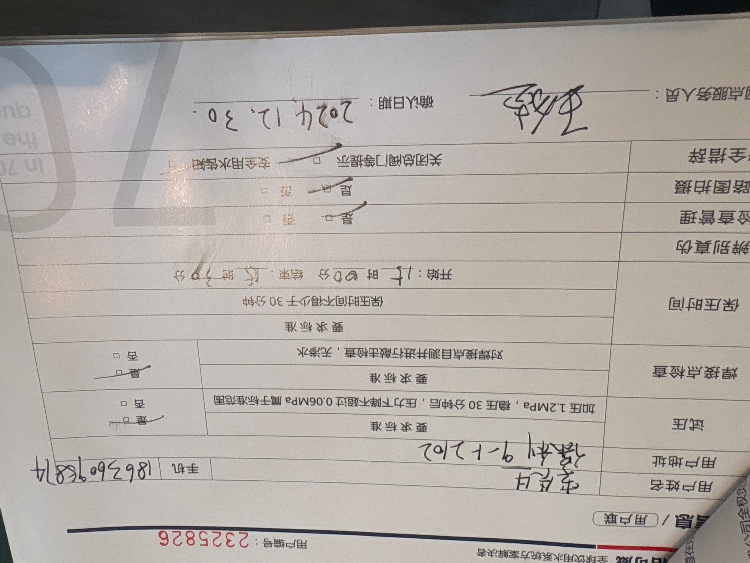 全球饮用水系统方案解决者
用户编号：2325826
息 / 用户联
用户姓名
手机 18636096874
用户地址 保利9-1-2102
试压 要求标准 是 否
加压1.2MPa，稳压30分钟后，压力下降不超过0.06MPa属于标准范围
焊接点检查 要求标准 是 否
对焊接点目测并进行敲击检查，无渗水
保压时间 要求标准
保压时间不得少于30分钟
开始：15时00分 结束：15时30分
辨别真伪
检查管理 是 否
路图拍摄 是 否
全措辞 关闭总阀门等提示 安全用水告知
点服务人员： 确认日期：2024.12.30.
In 70
the
qua
70